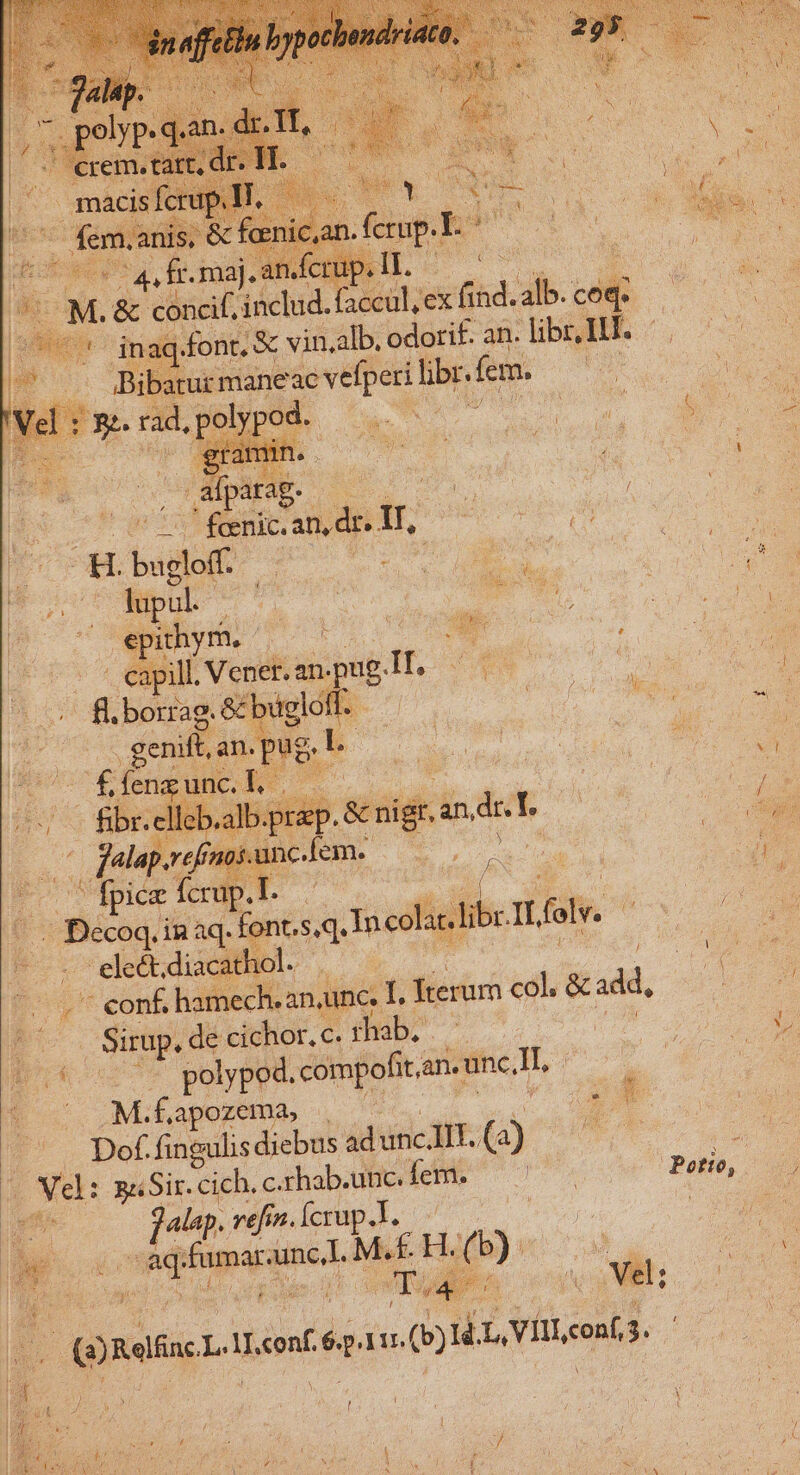 in affectu hypochondriaco. 295
Jalap.
polyp. q. an. dr. II,
crem. tart, dr. II.
macis ſcrup. II,
ſem, anis, & fœnic, an. ſcrup. I.
4, fr. maj. an. ſcrup. II.
M. & conciſ, includ. ſaccul, ex ſind. alb. coq.
in aq. font, & vin, alb, odorif. an. libr, III.
Bibatur mane ac veſperi libr. ſem.
Vel : ℞. rad, polypod.
gramin.
aſparag.
fœnic. an, dr. II,
H. bugloſſ.
lupul.
epithym.
capill. Vener. an. pug. II.
fl. borrag. & bugloſſ.
geniſt, an. pug. I.
ſ. ſenæ unc. I,
fibr. elleb. alb. præp. & nigr, an, dr. I.
Jalap. reſinoſ. unc. ſem.
ſpicæ ſcrup. I.
Decoq, in aq. font. s. q. In colat. libr. II, ſolv.
elect, diacathol.
conf. hamech. an, unc. I. Iterum col. & add,
Sirup, de cichor. c. rhab.
polypod. compoſit, an. unc, II,
M. f. apozema,
Doſ. ſingulis diebus ad unc. III. (a)
Vel : ℞. Sir. cich. c. rhab. unc. ſem. Potio,
Jalap. reſin. ſcrup. I.
aq. fumar. unc, I. M. f. H. (b)
T 4 Vel;
(a) Rolfinc. L. II. conſ. 6. p. 111. (b) Id. L, VIII, conſ, 3.